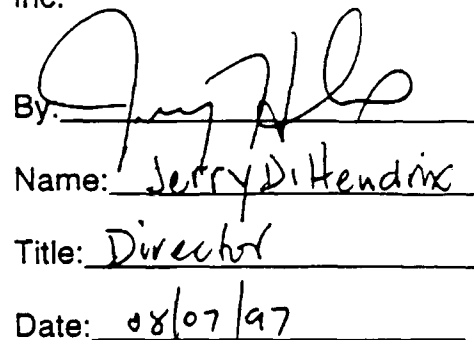 Inc.
By:
Name: Jerry D. Hendrix
Title: Director
Date: 08/07/97